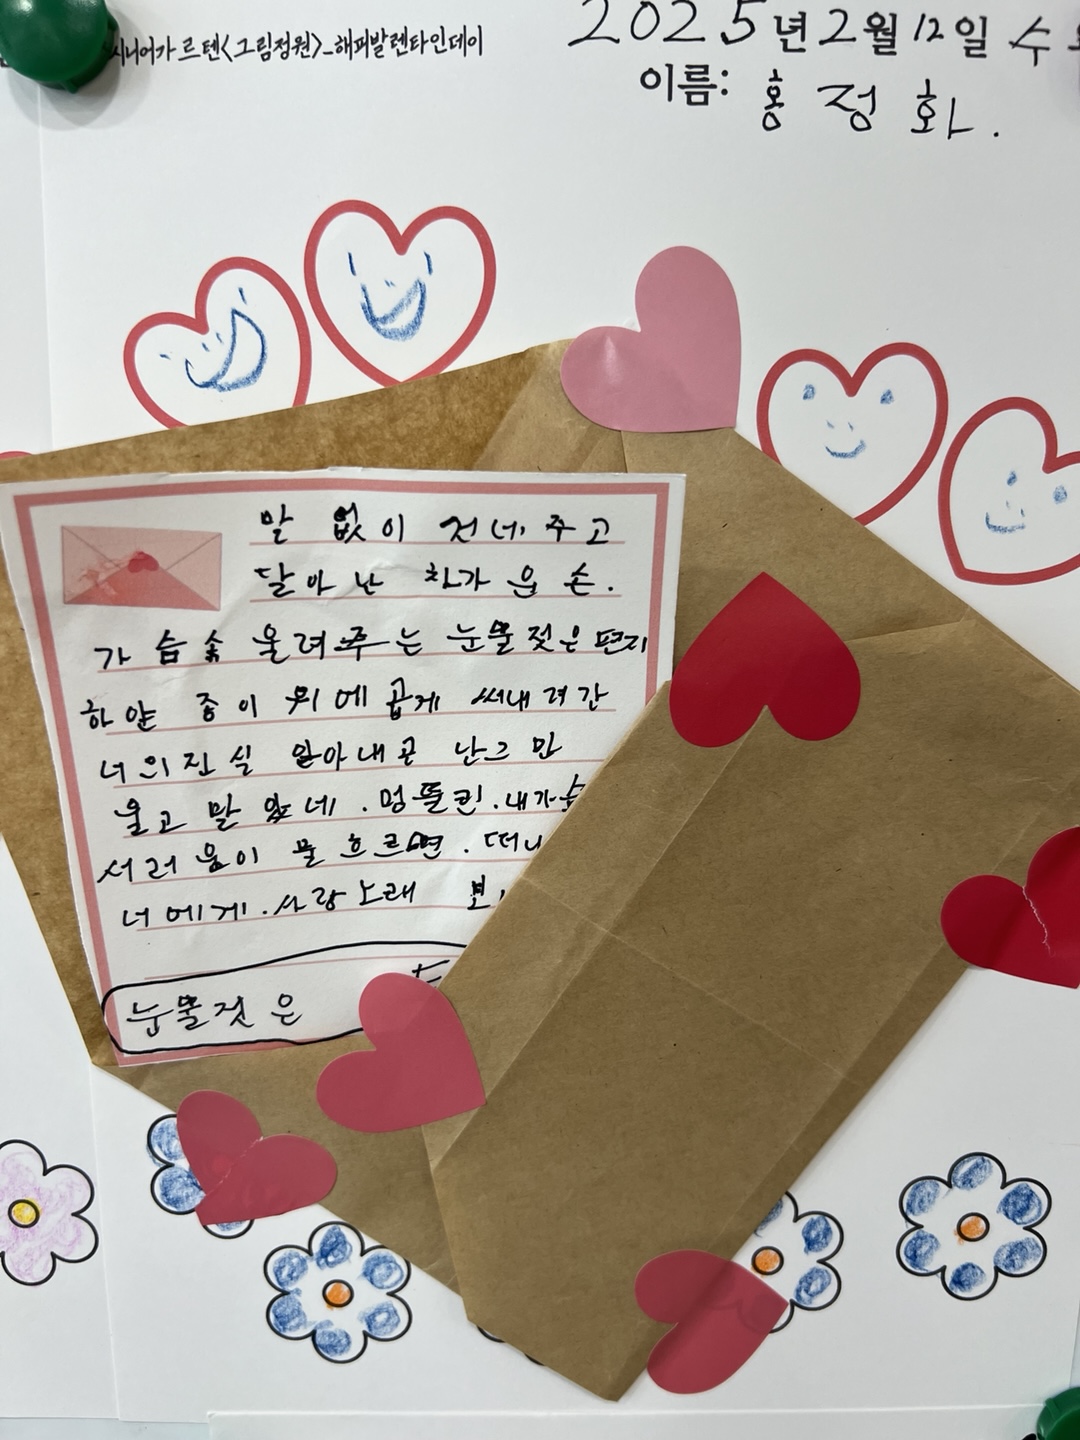 시니어가르텐<그림정원>_해피발렌타인데이
2025년 2월 12일 수
이름: 홍정화.
말 없이 건네 주고
달아 난 차가 운 손.
가 슴 속 울려 주 는 눈물젖은 편지
하얀 종이 위에 곱게 써내 려간
너의 진실 알아내곤 난 그만
울고 말 았네. 멍뚤린. 내가슴
서러움이 물 흐르면. 떠나
너에게. 사랑노래
눈물젖은